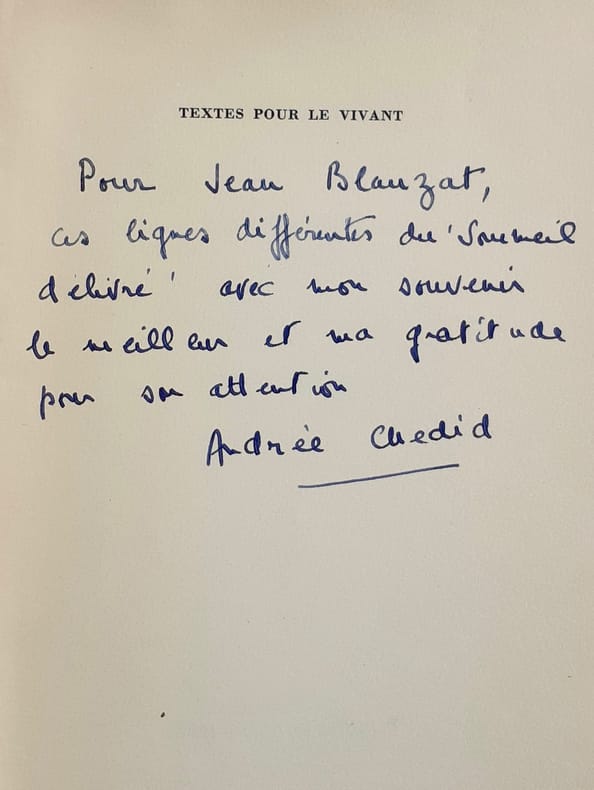 TEXTES POUR LE VIVANT
Pour Jean Blanzat,
ces lignes différentes du 'Sommeil
délivré' avec mon souvenir
le meilleur et ma gratitude
pour son attention
Andrée Chedid